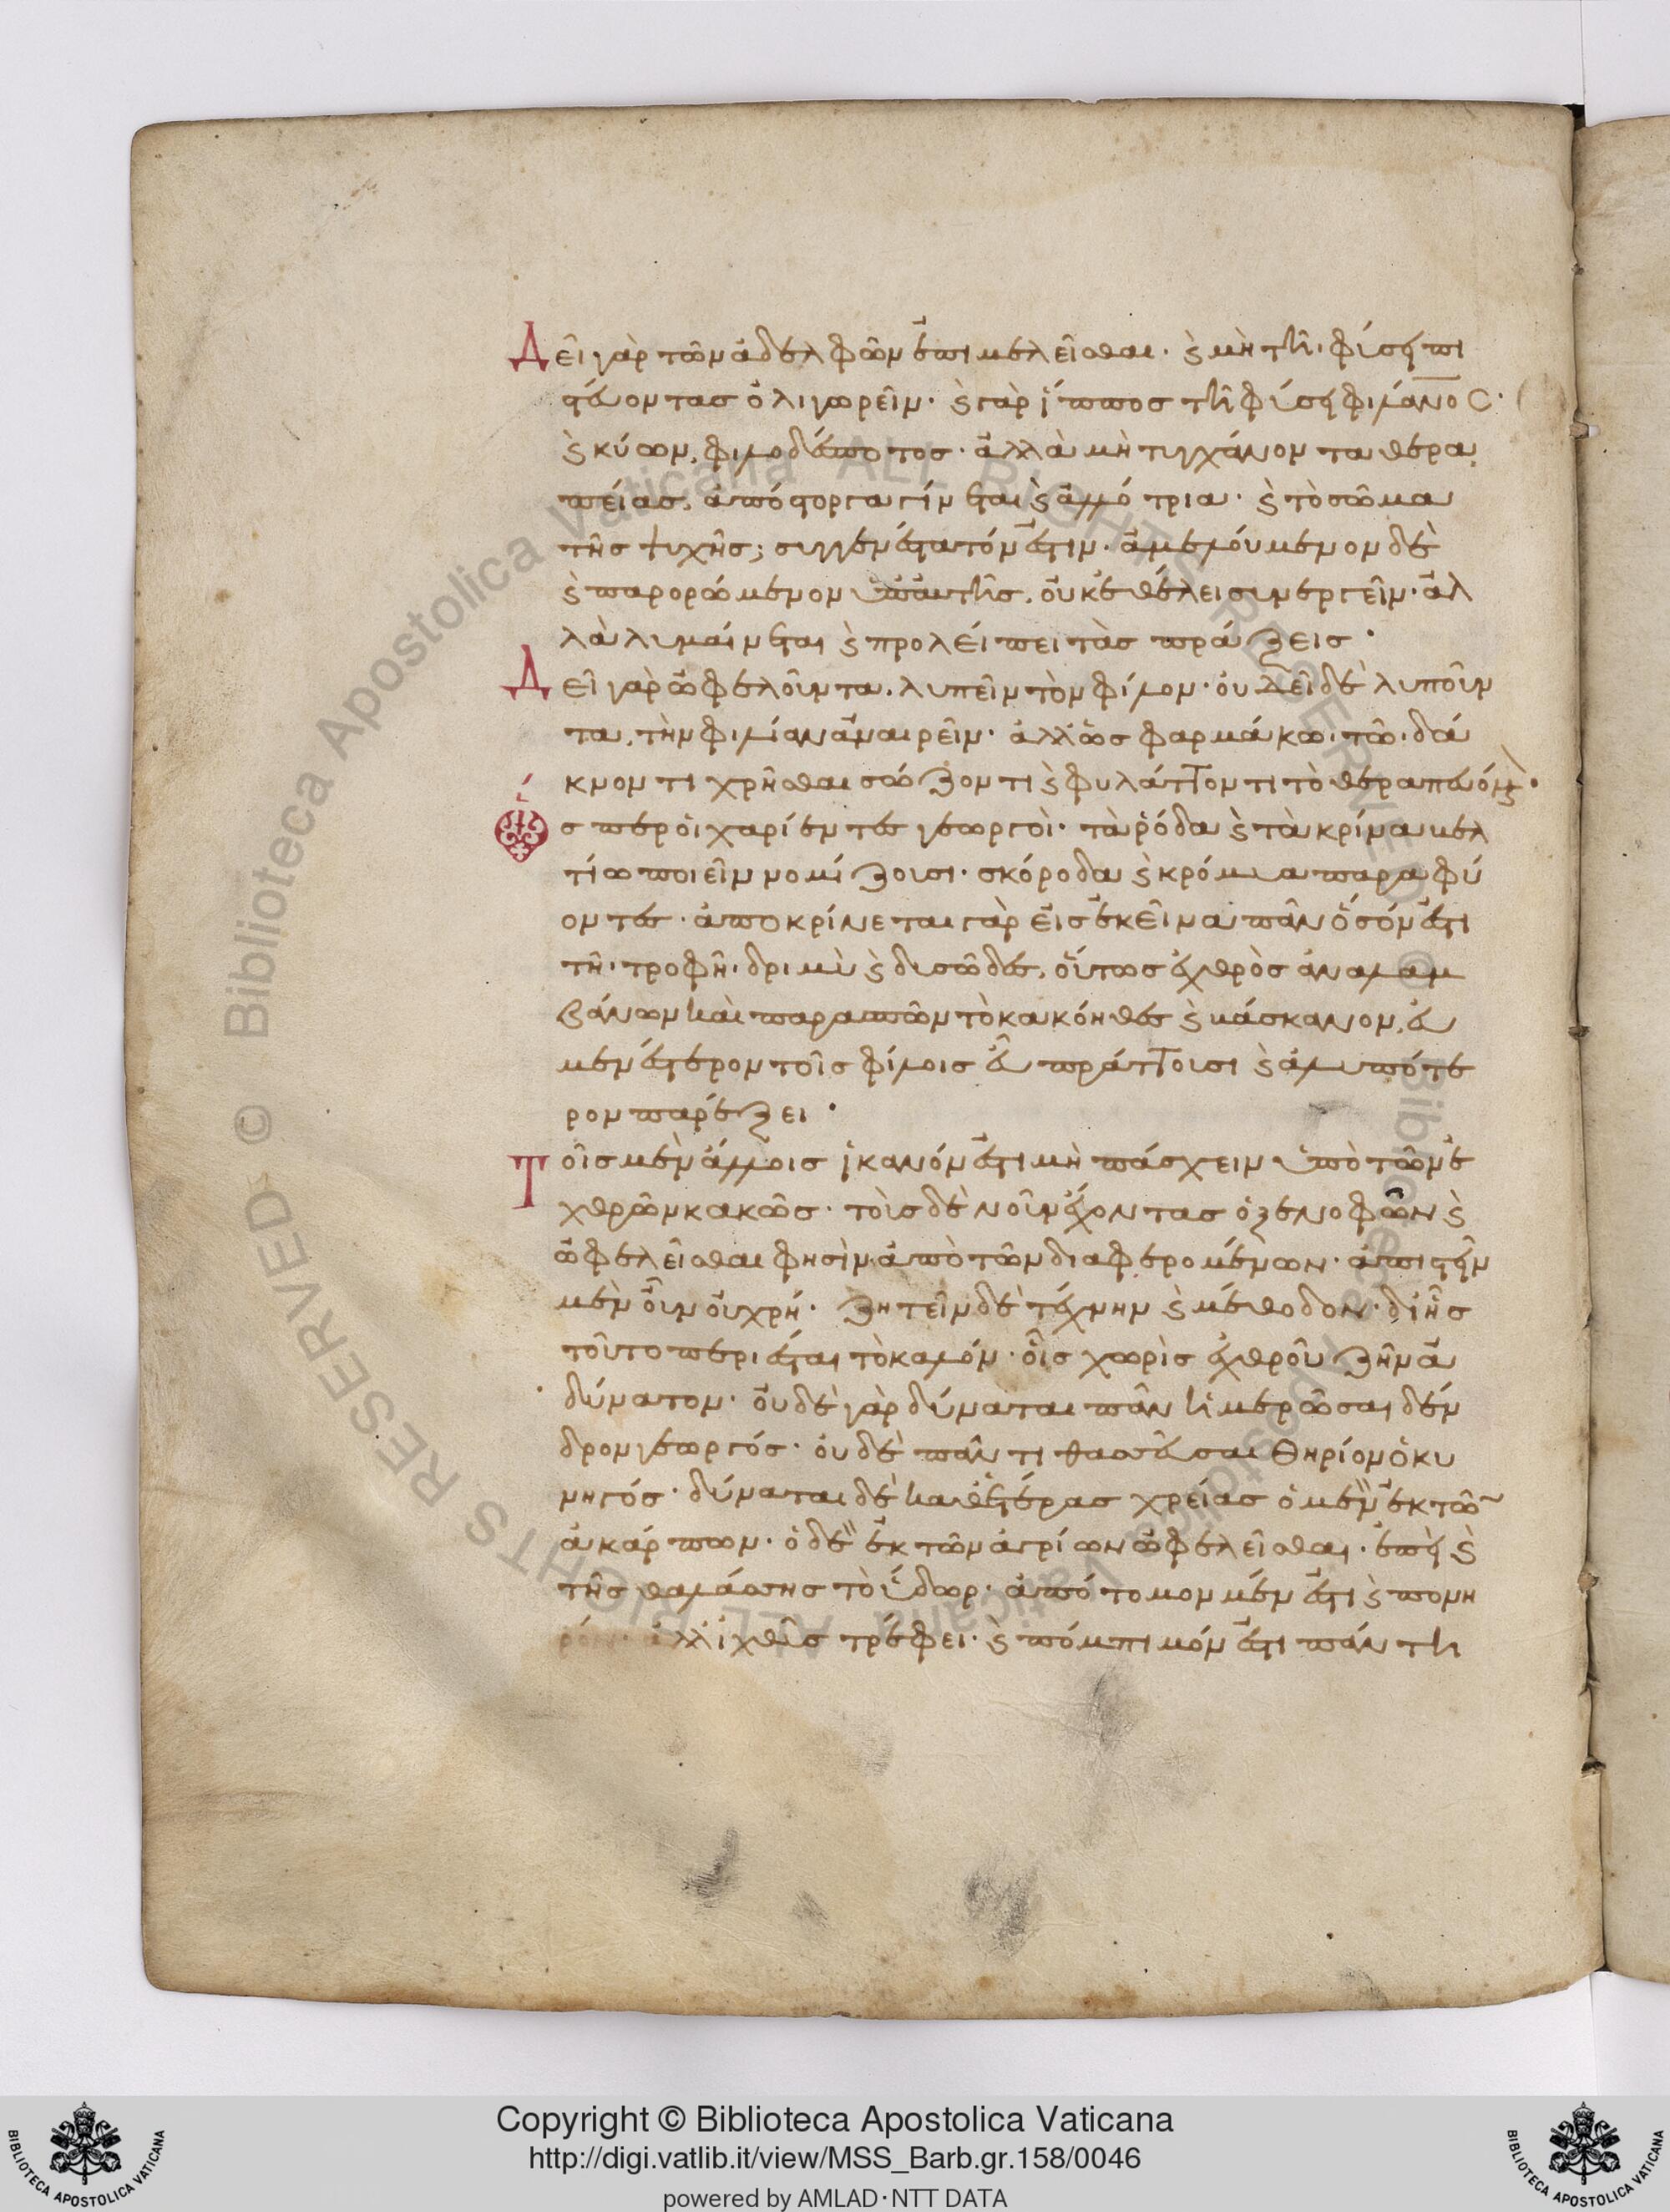 Δεῖ γὰρ τῶν ἀδελφῶν ἐπιμελεῖσθαι· ϗ μὴ τῆ φύσει πι
στεύοντας ὀλιγωρεῖν· ϗ γὰρ ἵππος τῆ φύσει φιλάνο̅ς·
ϗ κύων, φιλοδέσποτος· ἀλλὰ μὴ τυγχάνοντα θερα
πείας, ἀπόστοργα γίνεται ϗ ἀλλότρια· ϗ τὸ σῶμα
τῆς ψυχῆς; συγγενέστατόν ἐστιν· ἀμελούμενον δὲ
ϗ παρορώμενον ὑπ' αὐτῆς, οὐκ ἐθέλει συνεργεῖν· ἀλ
λὰ λυμαίνεται ϗ προλείπει τὰς πράξεις·
Δεῖ γὰρ ὠφελοῦντα, λυπεῖν τὸν φίλον· οὐ δεῖ δὲ λυποῦν
τα, τὴν φιλίαν ἀναιρεῖν· ἀλλ' ὡς φαρμάκω τῶ δά
κνοντι χρῆσθαι σώζοντι ϗ φυλάττοντι τὸ θεραπευόμεν·
ὥσπερ οἱ χαρίεντες γεωργοὶ· τὰ ῥόδα ϗ τὰ κρίνα βελ
τίω ποιεῖν νομίζουσι· σκόροδα ϗ κρόμυα παραφύ
οντες· ἀποκρίνεται γὰρ εἰς ἐκεῖνα πᾶν ὅσόν ἐστι
τῆ τροφῆ δριμὺ ϗ δυσῶδες, οὕτως ἐχθρὸς ἀναλαμ
βάνων καὶ παρασπῶν τὸ κακόηθες ϗ βάσκανον, εὐ
μενέστερον τοῖς φίλοις εὖ πράττουσι ϗ ἀλυπότε
ρον παρέξει·
Τοῖς μὲν ἄλλοις ἱκανόν ἐστι μὴ πάσχειν ὑπὸ τῶν ἐ
χθρῶν κακῶς· τοὺς δὲ νοῦν ἔχοντας ὁ ξενοφῶν ϗ
ὠφελεῖσθαι φησὶν ἀπὸ τῶν διαφερομένων· ἀπιστεῖν
μὲν οὖν οὐ χρή· ζητεῖν δὲ τέχνην ϗ μέθοδον· δι' ἧς
τοῦτο περιέσται τὸ καλόν· οἷς χωρὶς ἐχθροῦ ζῆν ἀ
δύνατον· οὐδὲ γὰρ δύναται πᾶν ἡμερῶσαι δέν
δρον γεωργός· οὐδὲ πᾶν τιθασσεῦσαι θηρίον ὁ κυ
νηγός· δύναται δὲ καθ' ἑτέρας χρείας ὁ μὲν ἐκ τῶν
ἀκάρπων· ὁ δὲ ἐκ τῶν ἀγρίων ὠφελεῖσθαι· ἐπεὶ ϗ
τῆς θαλάσσης τὸ ὕδωρ· ἀπότομον μέν ἐστι ϗ πονη
ρόν· ἀλλ' ἰχθῦς τρέφει· ϗ πόμπιμόν ἐστι πάντη
Copyright © Biblioteca Apostolica Vaticana
http://digi.vatlib.it/view/MSS_Barb.gr.158/0046
powered by AMLAD·NTT DATA